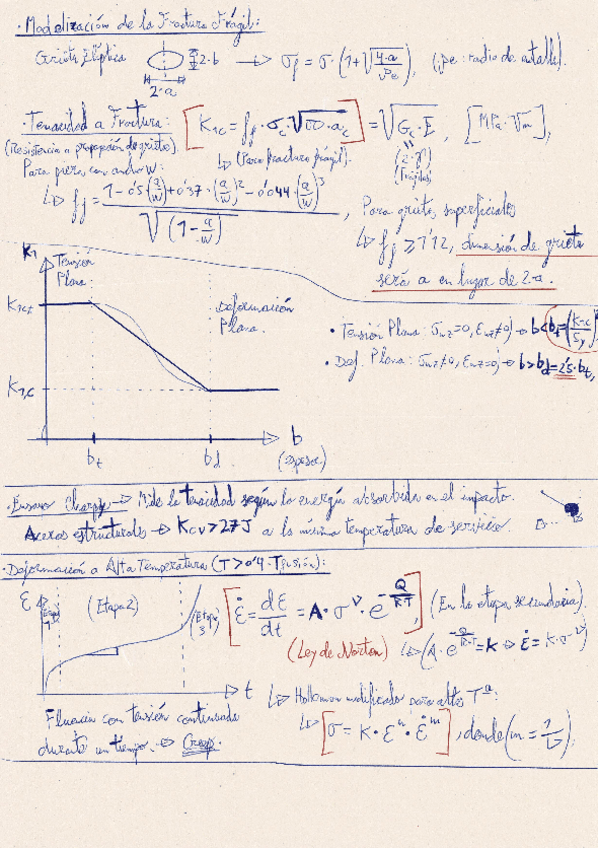 · Modelización de la Fractura Frágil:
Grieta Elíptica 2·b → σf = σ·(1+√(4·a/ρe)), (ρe: radio de entalle).
2·a
· Tenacidad a Fractura: [K1c = ff·σc·√(π·ac)] = √(Gc·E), [MPa·√m],
(Resistencia a propagación de grieta) ↳ (Para fractura frágil). (2·γ) (Frágiles)
Para pieza con ancho w:
↳ ff = (1-0'5·(a/w)+0'37·(a/w)²-0'044·(a/w)³)/√(1-a/w), Para grietas superficiales
↳ ff ≥ 1'12, dimensión de grieta
será a en lugar de 2·a.
K1
Tensión Plana. Deformación Plana.
K1ct
K1c
bt bd b (espesor)
• Tensión Plana: σz=0, εz≠0 → b<bt=(K1c/Sy)²
• Def. Plana: σz≠0, εz=0 → b>bd=2'5·bt,
· Ensayo Charpy → Mide la tenacidad según la energía absorbida en el impacto.
Aceros estructurales → KCV>27J a la mínima temperatura de servicio.
· Deformación a Alta Temperatura (T>0'4·Tfusión):
ε (Etapa 1) (Etapa 2) (Etapa 3) t
[ε̇ = dε/dt = A·σ^ν·e^(-Q/(R·T))], (En la etapa secundaria).
(Ley de Norton) ↳ (A·e^(-Q/(R·T)) = K → ε̇ = K·σ^ν)
↳ Hollomon modificado para altas Tª:
↳ [σ = K·ε^n·ε̇^m], donde (m = 1/ν).
Fluencia con tensión continuada
durante un tiempo. → Creep.